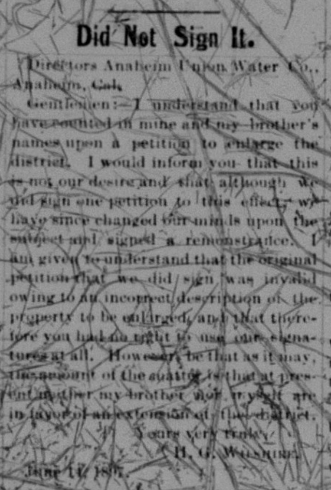 Did Not Sign It.
Directors Anaheim Union Water Co.,
Anaheim, Cal.
Gentlemen:—I understand that you
have counted in mine and my brother's
names upon a petition to enlarge the
district. I would inform you that this
is not our desire and that although we
did sign one petition to this effect, we
have since changed our minds upon the
subject and signed a remonstrance. I
am given to understand that the original
petition that we did sign was invalid
owing to an incorrect description of the
property to be enlarged, and that there-
fore you had no right to use our signa-
tures at all. However, be that as it may,
the amount of the matter is that at pres-
ent neither my brother nor myself are
in favor of an extension of the district.
Yours very truly,
H. G. WILSHIRE.
June 11,